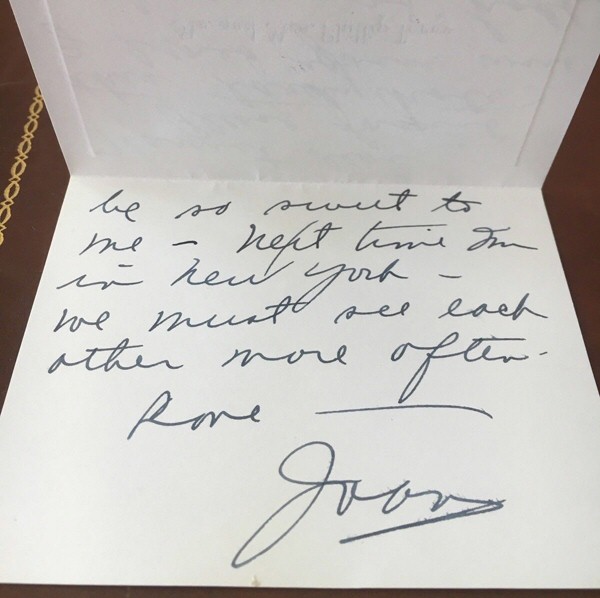 be so sweet to
me — Next time Im
in New York —
we must see each
other more often.
Love
Joan